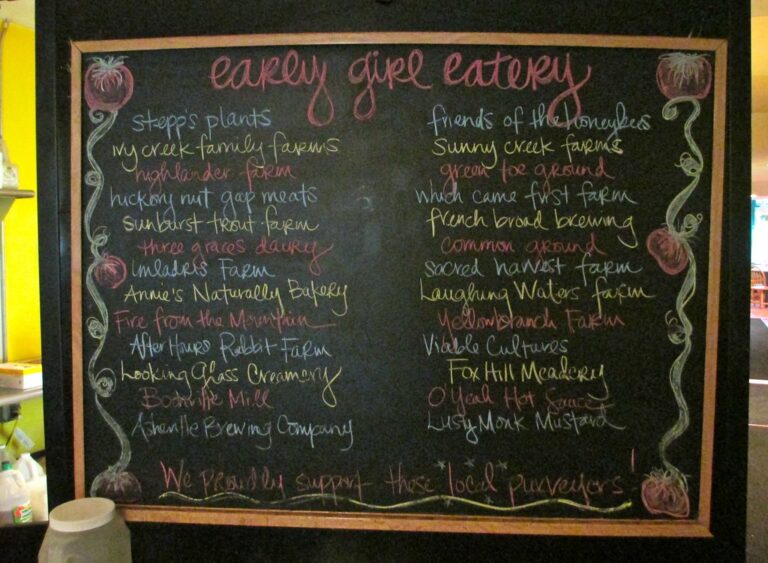 early girl eatery
stepp's plants
ivy creek family farms
highlander farm
hickory nut gap meats
sunburst trout farm
three graces dairy
Imladris Farm
Annie's Naturally Bakery
Fire from the Mountain
After Hours Rabbit Farm
Looking Glass Creamery
Boonville Mill
Asheville Brewing Company
friends of the honeybees
Sunny creek farms
green toe ground
which came first farm
french broad brewing
common ground
sacred harvest farm
Laughing Waters farm
Yellowbranch Farm
Viable Cultures
Fox Hill Meadery
O'Yeah Hot Sauce
Lusty Monk Mustard
We Proudly support these local purveyors!